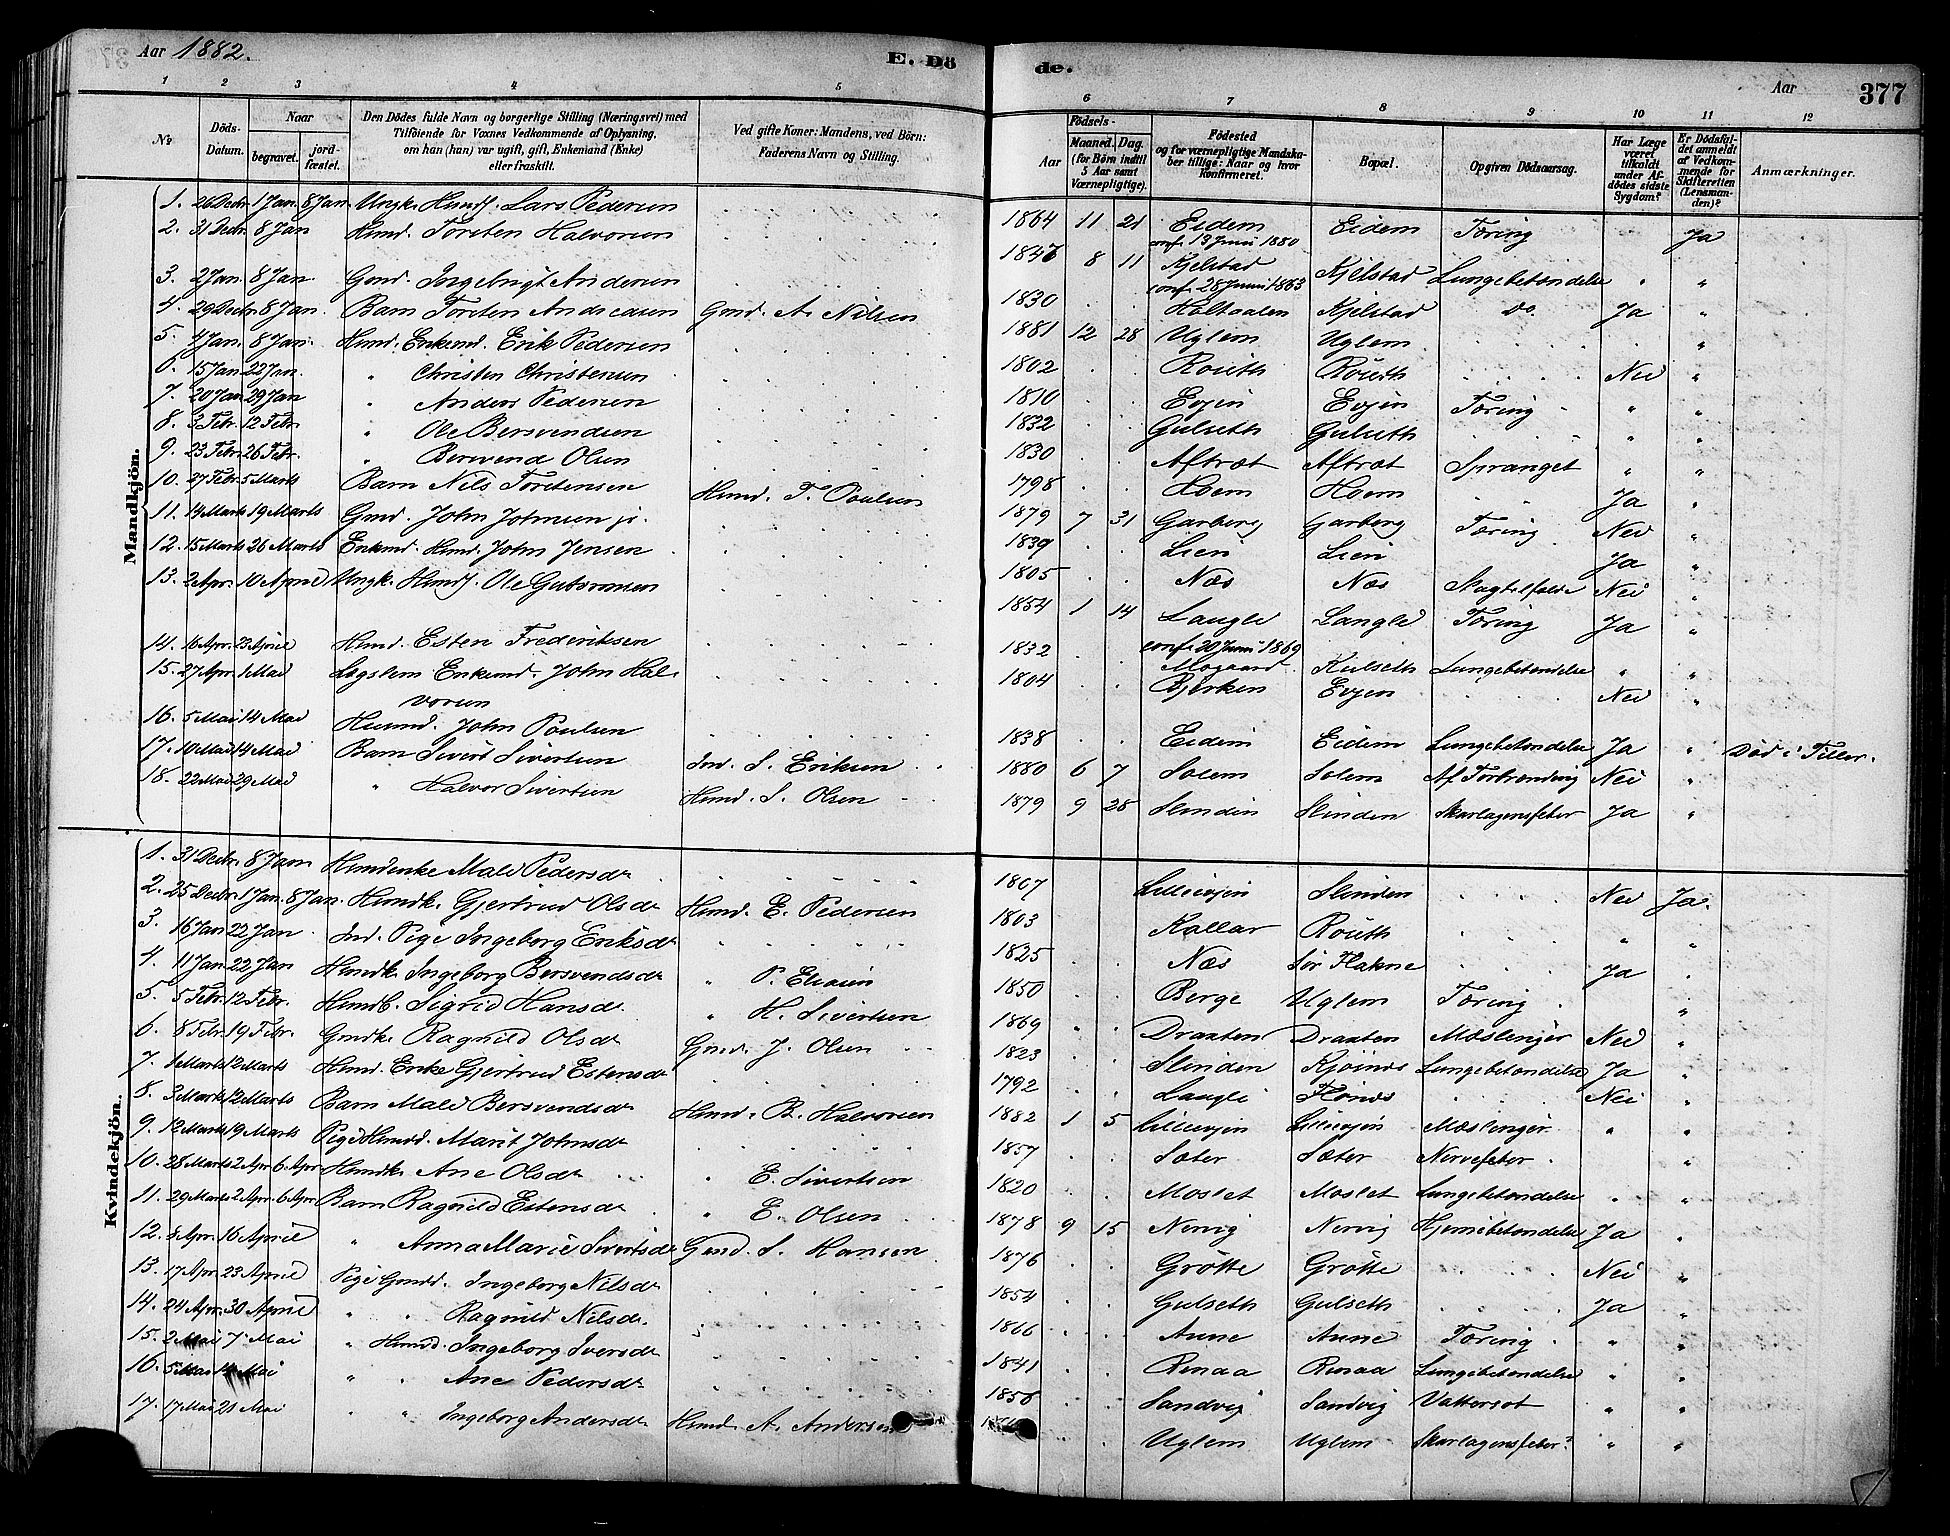 Aar 1882.
E. Dö
de.
Aar
377
1 2 3 4 5
6 7 8 9 10 11 12
№
Döds-Datum.
Naar
begravet.
jordfæstet.
Den Dödes fulde Navn og borgerlige Stilling (Næringsvei) med
Tilföiende for Voxnes Vedkommende af Oplysning,
om han (hun) var ugift, gift, Enkemand (Enke)
eller fraskilt.
Ved gifte Koner: Mandens, ved Börn:
Faderens Navn og Stilling.
Födsels-
Aar
Maaned. Dag.
(for Börn indtil
5 Aar samt
Værnepligtige).
Födested
og for værnepligtige Mandska-
ber tillige: Naar og hvor
konfirmeret.
Bopæl.
Opgiven Dödsaarsag.
Har Læge
været
tilkaldt
under Af-
dödes sidste
Sygdom?
Er Dödsfal-
det anmeldt
af Vedkom-
mende for
Skifteretten
(Lensman-
den)?
Anmærkninger.
Mandkjön.
1. 26 Decbr. 1 Jan. 8 Jan. Ungk. Husmds. Lars Pedersen 1864 11 21 Eidem Eidem Tæring Ja
conf. 19 Juni 1880
2. 31 Decbr. 8 Jan Husmd. Torsten Halvorsen 1847 8 11 Kjelstad Kjelstad Lungebetændelse " "
conf. 28 Juni 1863
3. 2 Jan. 8 Jan. Gmd. Ingebrigt Andersen 1830 Holtaalen Kjelstad Do. Ja "
4. 29 Decbr. 8 Jan. Barn Torsten Andreasen Gmd. A. Nilsen 1881 12 28 Uglem Uglem "
5. 4 Jan. 8 Jan. Husmd. Enkemd. Erik Pedersen 1802 Röseth Röseth Nei "
6. 15 Jan 22 Jan. " Christen Christensen 1810 Evjen Evjen Tæring " "
7. 20 Jan 29 Jan " Anders Pedersen 1832 Gulseth Gulseth " "
8. 3 Febr. 12 Febr. " Ole Bersvendsen 1830 Aftræt Aftræt Spranget " "
9. 23 Febr. 26 Febr. " Bersvend Olsen 1798 Hoem Hoem Ja "
10. 27 Febr. 5 Marts Barn Nils Torstensen Husmd. T. Poulsen 1879 7 31 Garberg Garberg Tæring Nei "
11. 14 Marts 19 Marts Gmd. John Johnsen jr. 1839 Lien Lien Ja "
12. 15 Marts 26 Marts Enkmd. Husmd. John Jensen 1805 Næs Næs Slagtilfælde Nei "
13. 2 Apr. 10 April Ungk. Husmds. Ole Guttormsen 1854 1 14 Langli Langli Tæring Ja "
conf. 20 Juni 1869
14. 16 Apr. 23 April Husmd. Esten Frederiksen 1832 Mogaard Kulseth Lungebetændelse " "
15. 27 Apr. 1 Mai Lægslem Enkemd. John Hal-
vorsen 1804 Bjerken Evjen Nei "
16. 5 Mai 14 Mai Husmd. John Poulsen 1838 Eidem Eidem Lungebetændelse Ja " Död i Tiller.
17. 10 Mai 14 Mai Barn Sivert Sivertsen Ind. S. Eriksen 1880 6 7 Solem Solem Af Forbrænding Nei "
18. 22 Mai 29 Mai " Halvor Sivertsen Husmd. S. Olsen 1879 9 28 Slinden Slinden Skarlagensfeber Ja "
Kvindekjön.
1. 31 Decbr. 8 Jan Husmdenke Mali Pedersdr 1807 Lillievjen Slinden Nei Ja.
2. 25 Decbr. 1 Jan. 8 Jan. Husmdk. Gjertrud Olsdr Husmd. E. Pedersen 1803 Kallar Röseth " "
3. 16 Jan 22 Jan. Ind. Pige Ingeborg Eriksdr 1825 Næs Sör Flakne Ja "
4. 11 Jan 22 Jan Husmdk. Ingeborg Bersvendsdr " P. Eliasen 1850 Berge Uglem Tæring "
5. 5 Febr. 12 Febr. Husmdb. Sigrid Hansdr. " H. Sivertsen 1869 Draxten Draxten Mæslinger Nei "
6. 8 Febr. 19 Febr. Gmdk. Ragnild Olsdr Gmd. J. Olsen 1823 Slinden Kjösnæs Lungebetændelse Ja "
7. Marts 12 Marts Husmd. Enke Gjertrud Estensdr 1792 Langli Flönæs Nei "
8. 3 Marts 12 Marts Barn Mali Bersvendsdr Husmd. B. Halvorsen 1882 1 5 Lillievjen Lillievjen Mæslinger. " "
9. 12 Marts 19 Marts Pige Husmd. Marit Johnsdr 1857 Sæter Sæter Nervefeber "
10. 28 Marts 2 Apr. 6 Apr Husmdk. Ane Olsdr " E. Sivertsen 1820 Moslet Moslet Lungebetændelse " "
11. 29 Marts 2 Apr. 6 Apr Barn Ragnild Estensdr " E. Olsen 1878 9 15 Nervig Nervig Hjernebetændelse Ja "
12. Apr. 16 April " Anna Marie Sivertsdr Gmd. S. Hansen 1876 Grötte Grötte Nei "
13. 17 Apr. 23 April Pige Gmds. Ingeborg Nilsdr 1854 Gulseth Gulseth Ja "
14. 24 Apr. 30 April " " Ragnild Nilsdr. 1866 Aune Aune Tæring " "
15. 2 Mai 7 Mai " Husmd. Ingeborg Iversdr 1841 Renaa Renaa Lungebetændelse " "
16. 5 Mai 14 Mai " " Ane Pedersdr 1856 Sandvig Sandvig Vattersot " "
17. 17 Mai 21 Mai " " Ingeborg Andersdr Husmd. A. Andersen Uglem Uglem Skarlagensfeber? " "